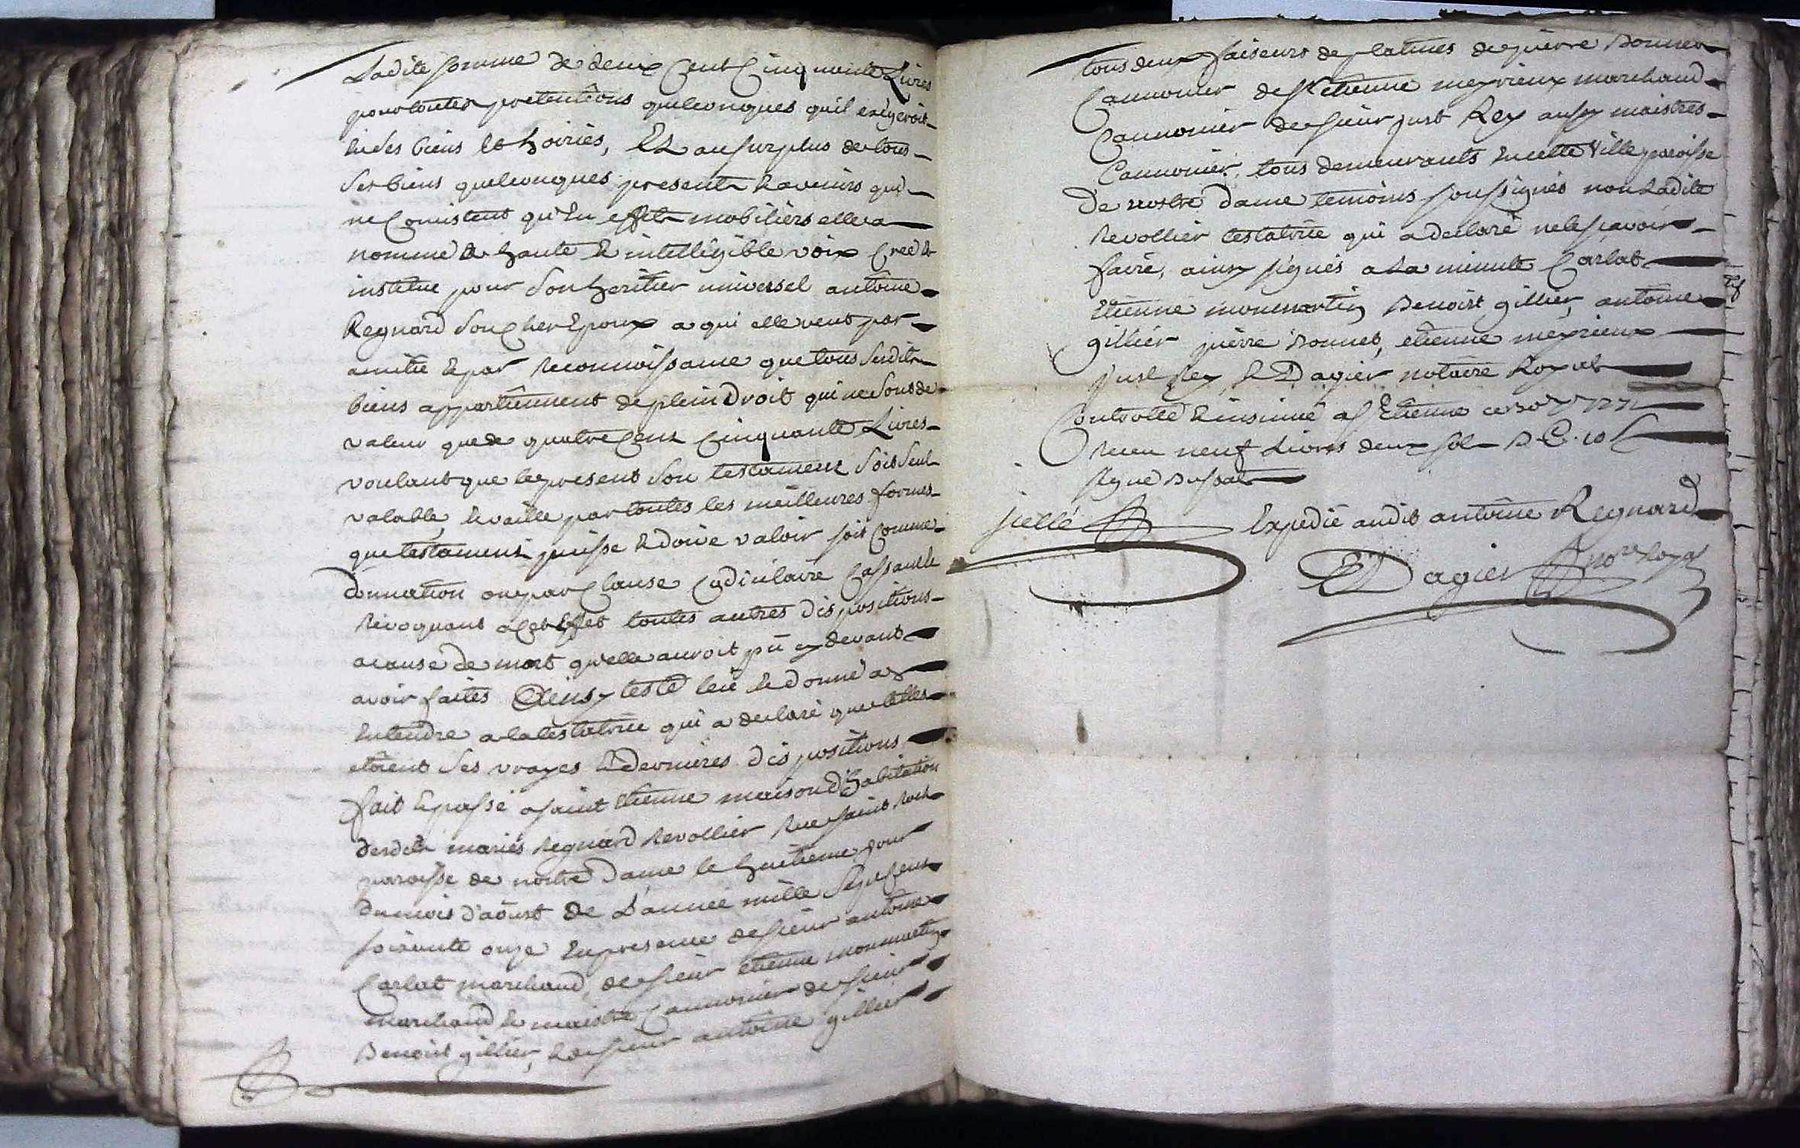 Ladite somme de deux Cent Cinquante Livres
pour toutes pretentions quelconques qu'il exigeroit
en ses biens et hoiries, Et au surplus de tous
Ses biens quelconques presents & avenirs qui
ne Consistent qu'en effets mobiliers elle a
nommé de haute & intelligible voix Créé &
institué pour Son heritier universel antoine
Regnard Son Cher Epoux a qui elle veut par
amitié & par reconnoissance que tous Sesdits
biens appartiennent de plein Droit qui ne Sont de
valeur que de quatre Cent Cinquante Livres
voulant que le present Son testament Soit Seul
valable, & vaille par toutes les meilleures formes
que testament puisse & doive valoir soit Comme
donnation ou par Clause Codicilaire Cassant &
Revoquant a Cet Effet toutes autres dispositions
a cause de mort qu'elle auroit pû cy devant
avoir faites Ainsy testé leu & donné a
Entendre a la testatrice qui a declaré que telles
etoient Ses vrayes & dernieres dispositions
fait & passé a saint Etienne maison d'habitation
desdits mariés Regnard Revollier Rue saint Roch
paroisse de nostre Dame le huitieme jour
du mois d'aoust de L'année mille Sept Cent
soixante onze En presence de sieur antoine
Carlat marchand, de sieur etienne monmartin
marchand & maistre Cannonier de sieur
Benoist gillier, & de sieur antoine gillier
tous deux faiseurs de platines de pierre Bonnet
Cannonier de St etienne meyrieux marchand
Cannonier de sieur just Rey aussy maistres
Cannonier, tous demeurants en cette Ville paroisse
De nostre dame temoins soussignés non Ladite
Revollier testatrice qui a declaré ne le sçavoir
faire, ainsy signés a La minute Carlat
Etienne monmartin Benoist gillier, antoine
gillier pierre Bonnet, etienne meyrieux
just Rey & Dagier notaire Royal
Controllé & insinué a St Etienne ce 1771
Receu neuf Livres deux sols
signé
scellé Expedié audit antoine Regnard
Dagier nore Royal